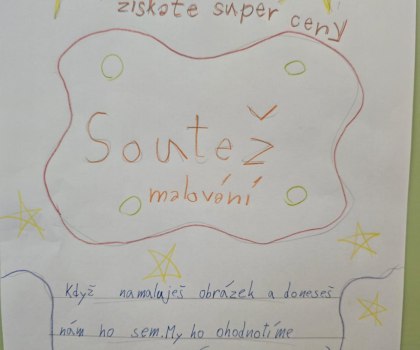 získate super ceny
Soutěž
malování
Když namaluješ obrázek a doneseš
nám ho sem. My ho ohodnotíme